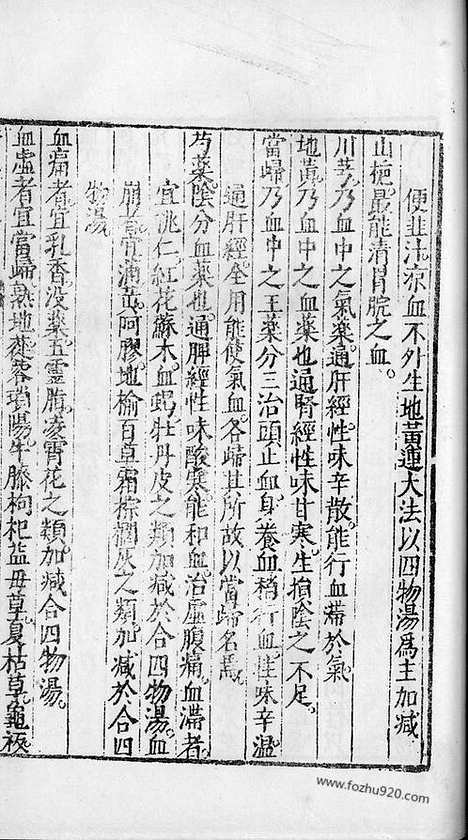 便韭汁涼血不外生地黃連大法以四物湯爲主加減
山梔最能清胃脘之血
川芎乃血中之氣藥通肝經性味辛散能行血滯於氣
地黃乃血中之血藥也通腎經性味甘寒生損陰之不足
當歸乃血中之主藥分三治頭止血身養血稍行血性味辛溫
通肝經全用能使氣血各歸其所故以當歸名焉
芍藥陰分血藥也通脾經性味酸寒能和血治虛腹痛血滯者
宜桃仁紅花蘇木血竭牡丹皮之類加減於合四物湯血
崩者宜蒲黃阿膠地榆百草霜棕櫚灰之類加減於合四
物湯
血痛者宜乳香沒藥五靈脂凌霄花之類加減合四物湯
血虛者宜當歸熟地蓯蓉瑣陽牛膝枸杞益母草夏枯草龜板
www.fozhu920.com